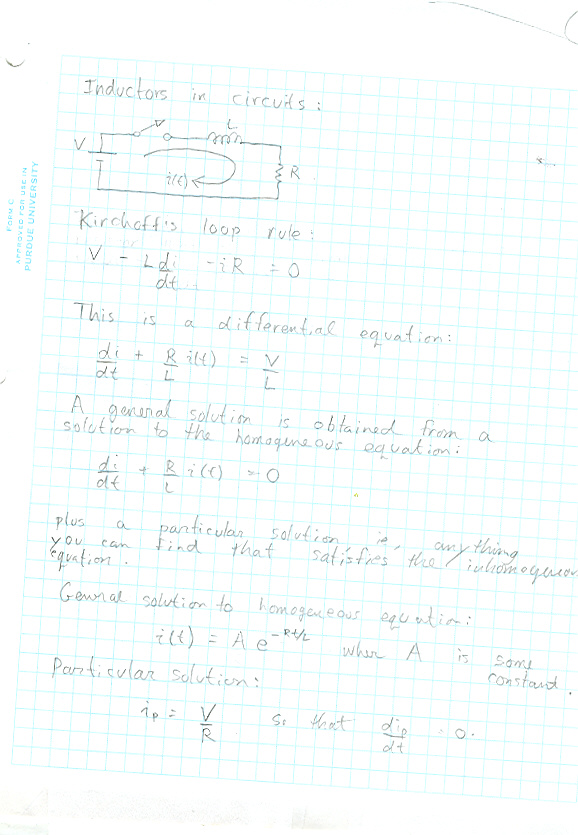 Inductors in circuits:
L
V
R
i(t)
FORM C
APPROVED FOR USE IN
PURDUE UNIVERSITY
Kirchoff's loop rule:
V - L di/dt - iR = 0
This is a differential equation:
di/dt + R/L i(t) = V/L
A general solution is obtained from a
solution to the homogeneous equation:
di/dt + R/L i(t) = 0
plus a particular solution, ie, anything
you can find that satisfies the inhomogeneou
equation.
General solution to homogeneous equation:
i(t) = A e^-Rt/L where A is some
constant.
Particular solution:
i_p = V/R so that di_p/dt = 0.